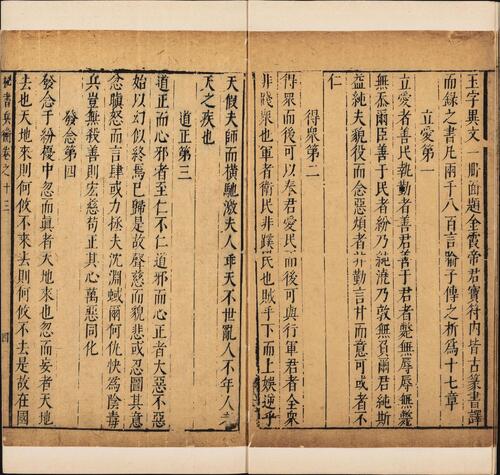 玉字異文一貼面題金霞帝君寶符内皆古篆書譯
而録之書凡兩千八百言喻子傳之析爲十七章
立愛第一
立愛者善民執勤者善君善于君者斃無辱辱無斃
無忝爾臣善于民者紛乃純澆乃敦無負爾君純斯
益純夫貌役而念惡煩者非勤言甘而意可或者不
仁
得衆第二
得衆而後可以奉君愛民而後可與行軍君者全衆
非賤衆也軍者衛民非蹊民也賊乎下而上娛逆乎
天假夫師而橫馳激夫人乖天不世亂人不年人
天之疾也
道正第三
道正而心邪者至仁不仁道邪而心正者大惡不惡
始以幻似終焉已歸是故聲慈而貌悲或忍圖其意
忿驥怒而言肆或力拯夫沈淵蜮爾何仇快爲陰毒
兵豈無殺善則宏慈苟正其心萬惡同化
發念第四
發念于紛擾中忽而眞者天地來也忽而妄者天地
去也天地來則何攸不來去則何攸不去是故在國
秘書兵衡卷之十三
四